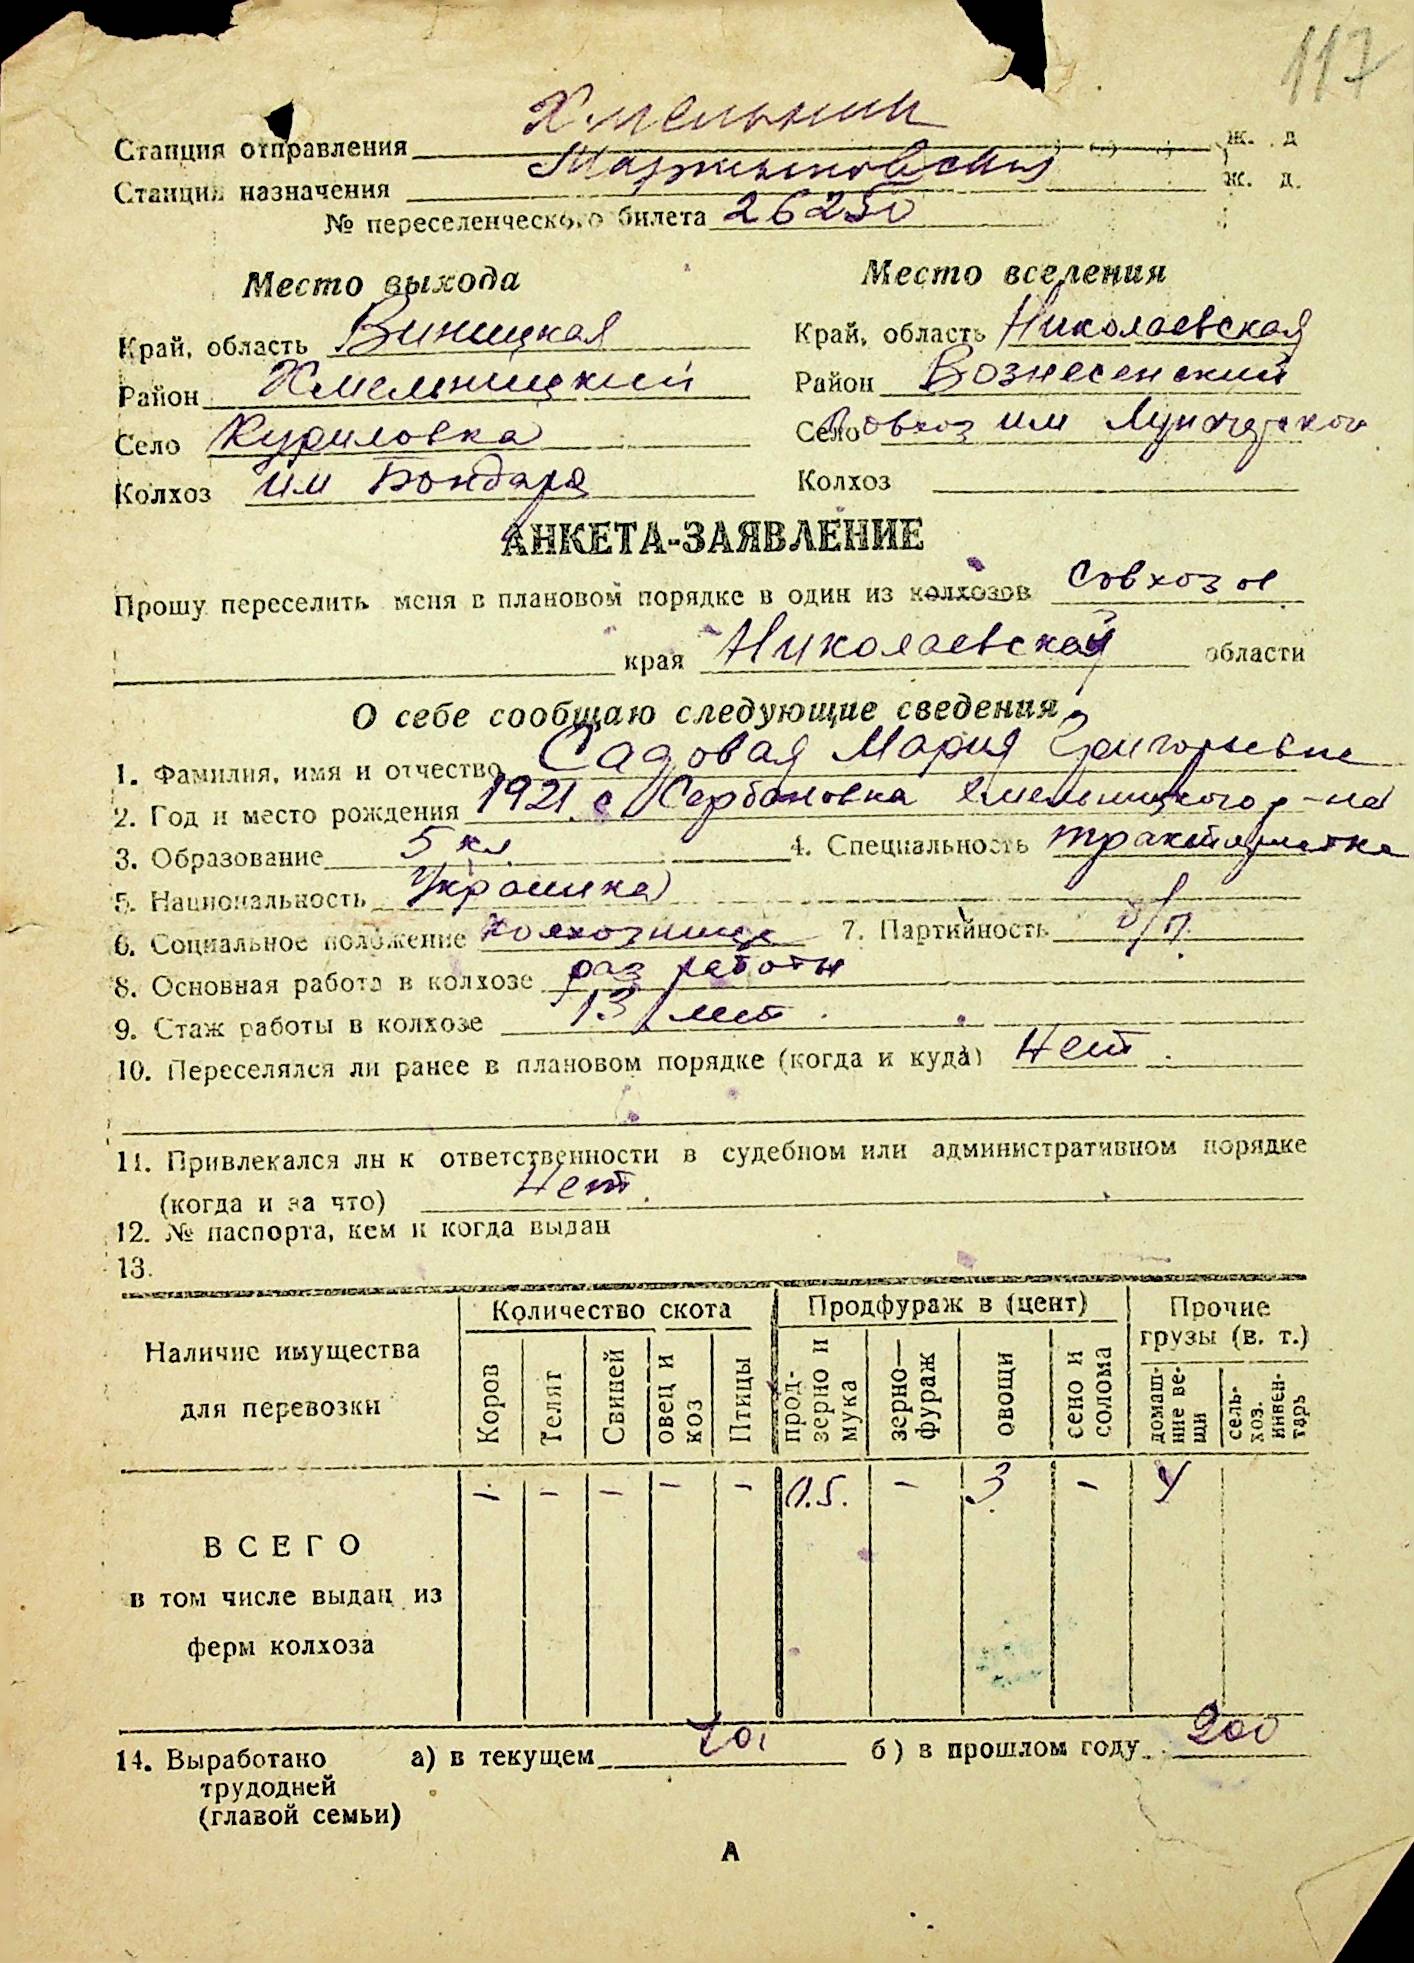 117
Станция отправления Хмельник ж. д
Станция назначения Мартыновская ж. д.
№ переселенческого билета 26250
Место выхода Место вселения
Край, область Виницкая Край, область Николаевская
Район Хмельницкий Район Вознесенский
Село Куриловка Село Совхоз им
Колхоз им Бондаря Колхоз
АНКЕТА-ЗАЯВЛЕНИЕ
Прошу переселить меня в плановом порядке в один из колхозов совхозов
края Николаевской области
О себе сообщаю следующие сведения
1. Фамилия, имя и отчество Садовая Мария Григорьевне
2. Год и место рождения 1921 с Сербановка Хмельницкого р-на
3. Образование 5 кл. 4. Специальность трактористка
5. Национальность Украинка
6. Социальное положение колхозница 7. Партийность б/п.
8. Основная работа в колхозе раз работы
9. Стаж работы в колхозе 13 лет.
10. Переселялся ли ранее в плановом порядке (когда и куда) Нет.
11. Привлекался ли к ответственности в судебном или административном порядке
(когда и за что) Нет.
12. № паспорта, кем и когда выдан
13.
Наличие имущества для перевозки
Количество скота
Продфураж в (цент)
Прочие грузы (в. т.)
Коров
Телят
Свиней
овец и коз
Птицы
прод-зерно и мука
зерно—фураж
овощи
сено и солома
домаш-ние ве-щи
сель-хоз. инвен-тарь
– – – – – 0.5. – 3 –
ВСЕГО
в том числе выдан из
ферм колхоза
14. Выработано а) в текущем б) в прошлом году 200
трудодней
(главой семьи)
А